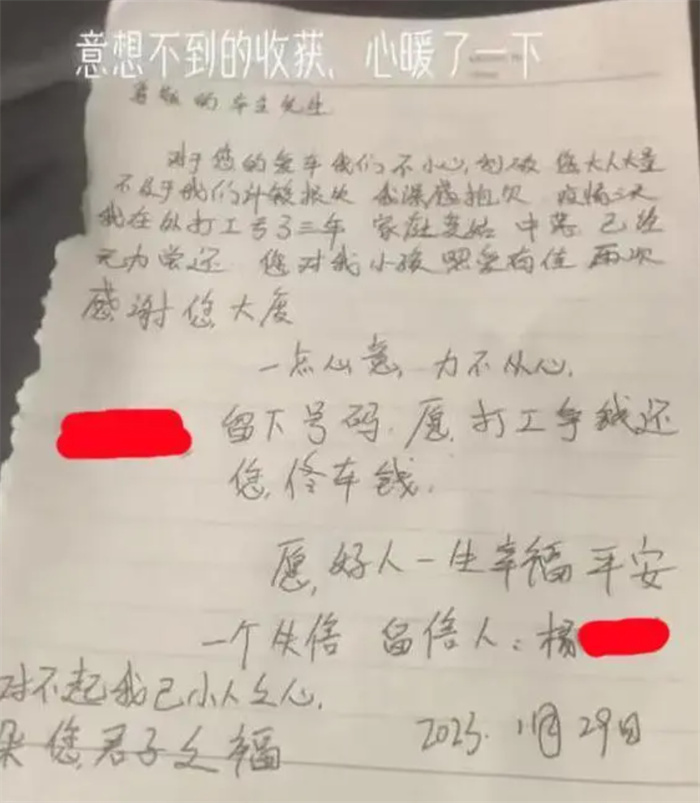 意想不到的收获，心暖了一下
尊敬的车主先生
对于您的爱车我们不小心，划破 您大人大量
不及于我们计较损次 我深感抱欠 疫情三天
我在外打工亏了三年 家庭 中落 已经
无力尝还 您对我小孩 照爱有佳 再次
感谢您大度
一点心意，力不从心，
留下号码，愿，打工争钱还
您，修车钱，
愿，好人一生幸福平安
一个失信 留信人：杨
对不起我已小人之心，
您，君子之福
2023. 11月29日